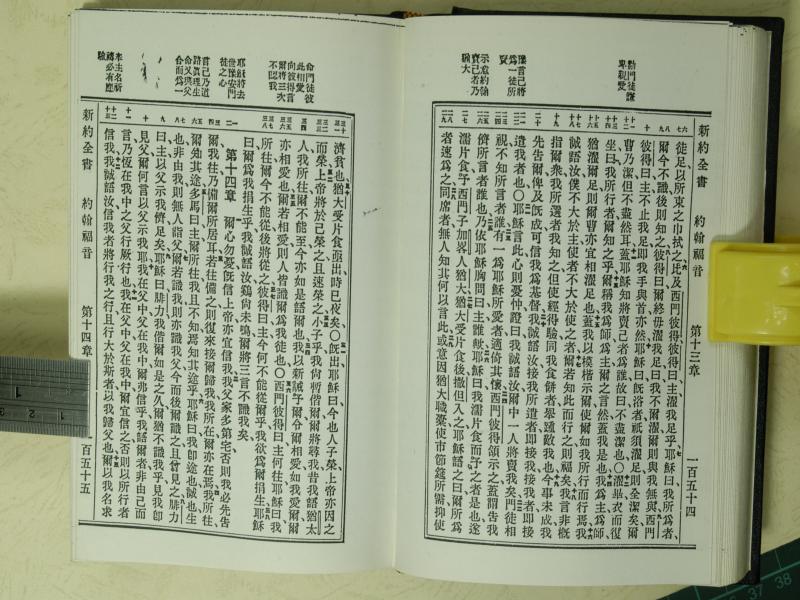 新約全書 約翰福音 第十三章 一百五十四
勸門徒謙
卑親愛
豫言己將
爲一徒所
賣
示意約翰
賣己者乃
猶大
徒足以所束之巾拭之、及西門彼得、彼得曰、主濯我足乎、耶穌曰、我所爲者、
爾今不識、後則知之、彼得曰、爾終毋濯我足、曰、我不爾濯、爾則與我無與、西門
彼得曰、主不止我足、卽我手與首亦然、耶穌曰、旣浴者、祇須濯足則全潔矣、爾
曹乃潔、但不盡然耳、蓋耶穌知將賣己者爲誰、故曰不盡潔也、〇濯畢、衣而復
坐曰、我所行者、爾知之乎、爾稱我爲師、爲主、爾之言然、蓋我是也、我爲主爲師
猶濯爾足、則爾曹亦宜相濯足也、蓋我以模楷示爾、使爾如我所行而行焉、我
誠語汝、僕不大於主、使者不大於使之者、爾若知此而行之、則福矣、我言非槪
指爾衆、我所選者、我知之、但使經得驗、同我食餅者、舉踵敵我也、今事未成、我
先告爾、俾及旣成、可信我爲基督、我誠語汝、接我所遣者、卽接我、接我者、卽接
遣我者也、〇耶穌言此、心則憂忡、證曰、我誠語汝、爾中一人將賣我矣、門徒相
視、不知所言者誰、有一爲耶穌所愛者、適倚其懷、西門彼得頷示之、蓋謂告我
儕所言者誰也、乃依耶穌胸問曰、主、誰歟、耶穌曰、我濡片食而予之者是也、遂
濡片食、予西門子加畧人猶大、猶大受片食後、撒但入之、耶穌語之曰、爾所爲
者、速爲之、同席者、無人知其何以言此、或意因猶大職橐、使市節筵所需、抑使
命門徒彼
此相愛
向彼得言
爾將三次
不認我
耶穌將去
世慰安門
徒之心
言己乃道
路眞理生
命又與父
合而爲一
奉主名祈
禱必有應
驗
濟貧也、猶大受片食、遂出、時已夜矣、〇旣出、耶穌曰、今也人子榮、上帝亦因之
而榮、上帝將於己榮之、且速榮之、小子乎、我尙暫偕爾、爾將尋我、昔我語猶太
人、我所往、爾不能至、今亦如是語爾也、我以新誡予爾、令爾相愛、如我愛爾、爾
亦相愛也、爾若相愛、則人皆識爾爲我徒也、〇西門彼得曰、主何往、耶穌曰、我
所往、爾今不能從、後將從之、彼得曰、主、今何不能從爾乎、我欲爲爾捐生、耶穌
曰、爾爲我捐生乎、我誠語汝、鷄尙未鳴、爾將三言不識我矣、
第十四章 爾心勿憂、旣信上帝、亦宜信我、我父家多第宅、否則我必先告
爾、我往乃備爾所居耳、若往備之、則復來接爾歸我、我所在、爾亦在焉、我所往、
爾知其途、多馬曰、主、爾所往、我且不知、焉知其途乎、耶穌曰、我卽途也、誠也、生
也、非由我、則無人詣父、爾若識我、則亦識我父、今而後爾識之、且曾見之、腓力
曰、主以父示我儕、足矣、耶穌曰、腓力、我偕爾如是之久、爾猶不識我乎、見我卽
見父、爾何言以父示我耶、我在父中、父在我中、爾弗信乎、我語爾者、非由己而
言、乃恆在我中之父、行厥行也、我在父中、父在我中、爾宜信之、否則以所行者
信我、我誠語汝、信我者、將行我之行、且行大於斯者、以我歸父也、爾以我名求
新約全書 約翰福音 第十四章 一百五十五
1
2
37
38